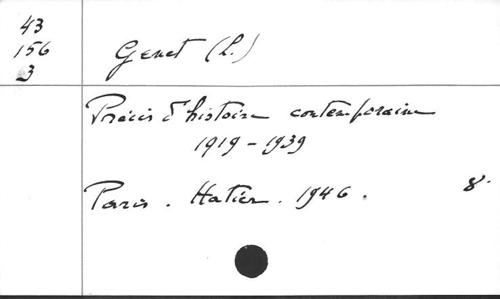 43
156
3
Genet (L.)
Précis d'histoire contemporaine
1919-1939
Paris. Hatier. 1946. 8°